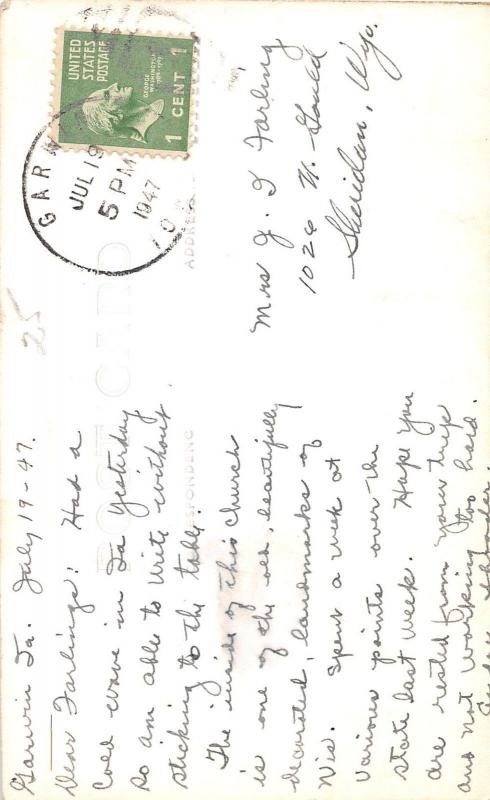 UNITED
STATES
POSTAGE
GEORGE
WASHINGTON
1789-1797
1 CENT 1
GARW
JUL 19
5 PM
1947
POST CARD
ADDRESS
25
Garwin Ia. July 19-47.
Dear Farlings! Had a
cold wave in Ia yesterday
so am able to write without
sticking to the table.
The inside of this church
is one of the old, beautifully
decorated, landmarks of
Wis. Spent a week at
various points over the
state last week. Hope you
are rested from your trip
and not working too hard.
Mrs J. I Farling
1026 N. Gould
Sheridan, Wyo.